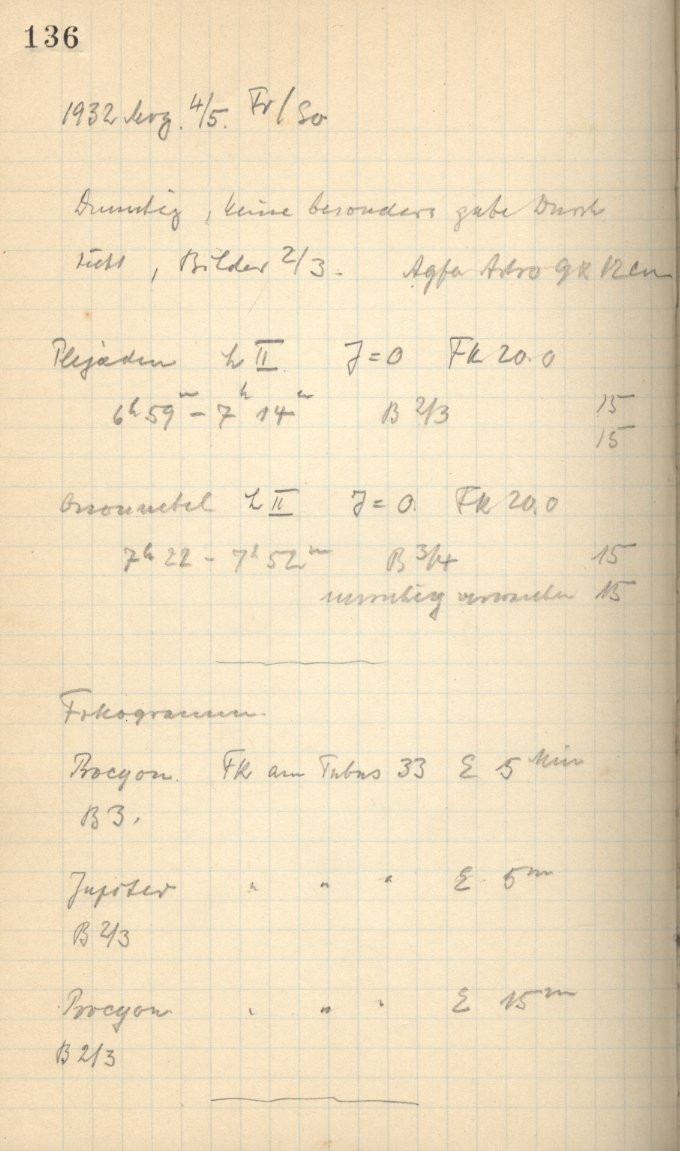 136
1932 März 4/5. Fr/So
Dunstig, keine besonders gute Durch
sicht, Bilder 2/3. Agfa Astro 9x12cm
Plejaden L II J=0 Fk 20.0
6h 59m - 7h 14m B 2/3 15
15
Orionnebel L II J=0. Fk 20.0
7h 22 - 7h 52m B 3/4 15
unruhig 15
Fokogramm
Procyon. Fk am Tubus 33 E 5 Min
B 3.
Jupiter " " " E 5m
B 2/3
Procyon " " " E 15m
B 2/3